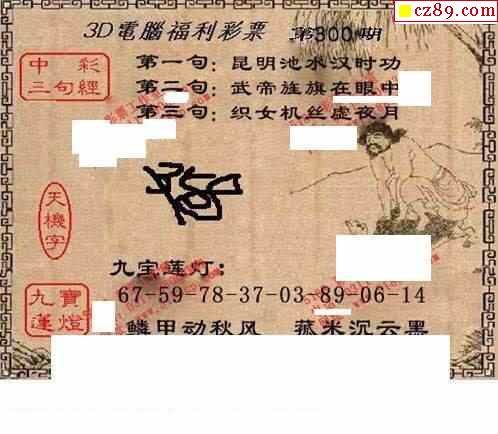 cz89.com
3D電腦福利彩票 第300期
中彩
三句經
第一句：昆明池水汉时功
第二句：武帝旌旗在眼中
第三句：织女机丝虚夜月
天機字
九宝莲灯：
九寶
蓮燈
67-59-78-37-03-89-06-14
鳞甲动秋风 菰米沉云黑